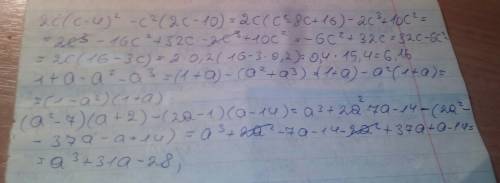 2c(c-4)² - c²(2c-10) = 2c(c²-8c+16) - 2c³+10c² =
= 2c³ - 16c² + 32c - 2c³ + 10c² = -6c² + 32c = 32c - 6c²
= 2c(16-3c) = 2·0,2(16-3·0,2) = 0,4·15,4 = 6,16
1+a-a²-a³ = (1+a) - (a²+a³) = (1+a) - a²(1+a) =
= (1-a²)(1+a)
(a²-7)(a+2) - (2a-1)(a-14) = a³+2a²-7a-14-(2a²-
- 37a-a+14) = a³+2a²-7a-14-2a²+37a+a-14=
= a³+31a-28,